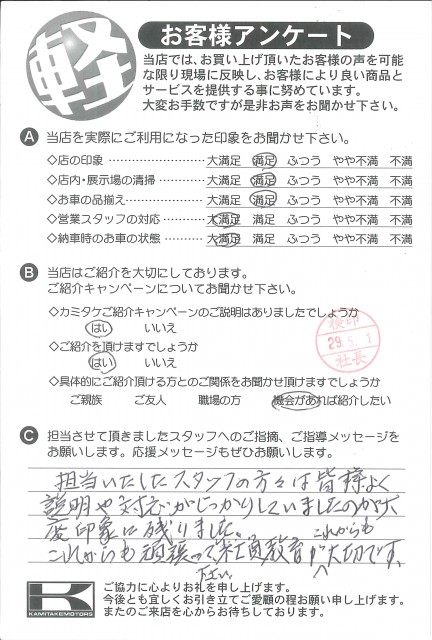 軽
お客様アンケート
当店では、お買い上げ頂いたお客様の声を可能
な限り現場に反映し、お客様により良い商品と
サービスを提供する事に努めています。
大変お手数ですが是非お声をお聞かせ下さい。
A 当店を実際にご利用になった印象をお聞かせ下さい。
◇店の印象 ………………… 大満足 満足 ふつう やや不満 不満
◇店内・展示場の清掃 ………… 大満足 満足 ふつう やや不満 不満
◇お車の品揃え ……………… 大満足 満足 ふつう やや不満 不満
◇営業スタッフの対応 ………… 大満足 満足 ふつう やや不満 不満
◇納車時のお車の状態 ………… 大満足 満足 ふつう やや不満 不満
B 当店はご紹介を大切にしております。
ご紹介キャンペーンについてお聞かせ下さい。
◇カミタケご紹介キャンペーンのご説明はありましたでしょうか
はい いいえ
◇ご紹介を頂けますでしょうか
はい いいえ
検印
29.5.1
社長
◇具体的にご紹介頂ける方とのご関係をお聞かせ頂けますでしょうか
ご親族 ご友人 職場の方 機会があれば紹介したい
C 担当させて頂きましたスタッフへのご指摘、ご指導メッセージを
お願いします。応援メッセージもぜひお願いします。
担当いたしたスタッフの方々は皆様よく
説明や対応がしっかりしていましたのが大
変印象に残りました。
これからも
これからも頑張って 社員教育が大切です。
下さい
K
KAMITAKEMOTORS
ご協力に心よりお礼を申し上げます。
今後とも宜しくお引き立てご愛顧の程お願い申し上げます。
またのご来店を心からお待ちしております。